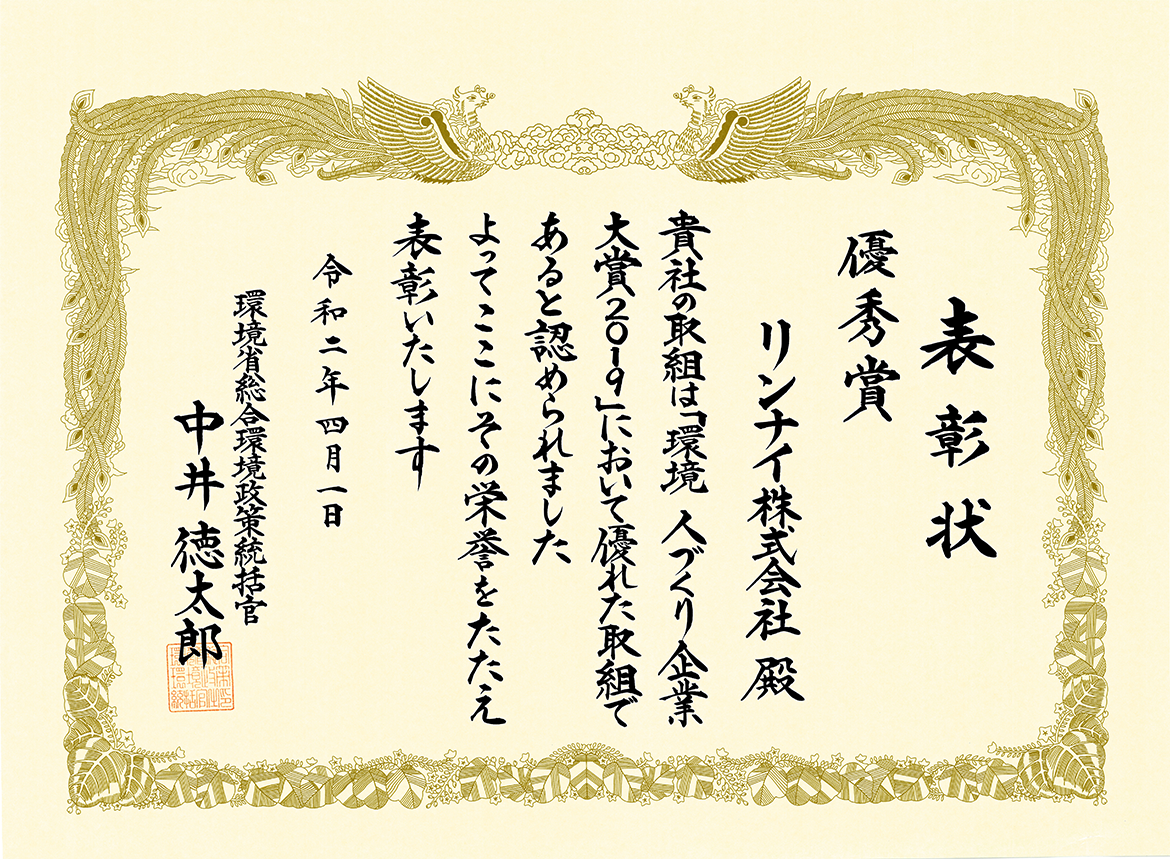 表彰状
優秀賞
リンナイ株式会社 殿
貴社の取組は「環境 人づくり企業
大賞2019」において優れた取組で
あると認められました
よってここにその栄誉をたたえ
表彰いたします
令和二年四月一日
環境省総合環境政策統括官
中井徳太郎